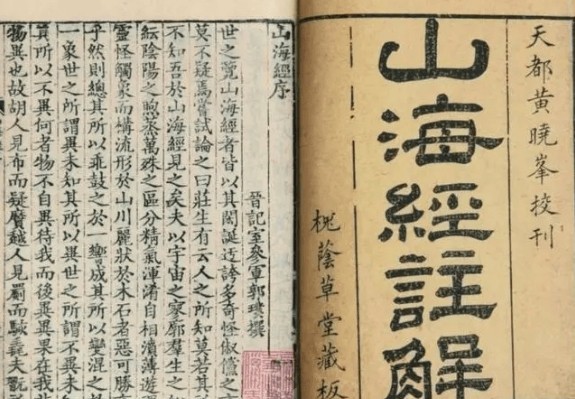 天都黃曉峯挍刊
山海經註解
槐蔭草堂藏板
山海經序
晉記室參軍郭璞撰
世之覽山海經者皆以其閎誕迂誇多奇怪俶儻之
莫不疑焉嘗試論之曰莊生有云人之所知莫若其
不知吾於山海經見之矣夫以宇宙之寥廓羣生之
紜陰陽之煦蒸萬殊之區分精氣渾淆自相濆薄遊
靈怪觸象而構流形於山川麗狀於木石者惡可勝
乎然則總其所以乖鼓之於一響成其所以變混之
一象世之所謂異未知其所以異世之所謂不異未
其所以不異何者物不自異待我而後異異果在我
物異也故胡人見布而疑黂越人見罽而駭毳夫翫